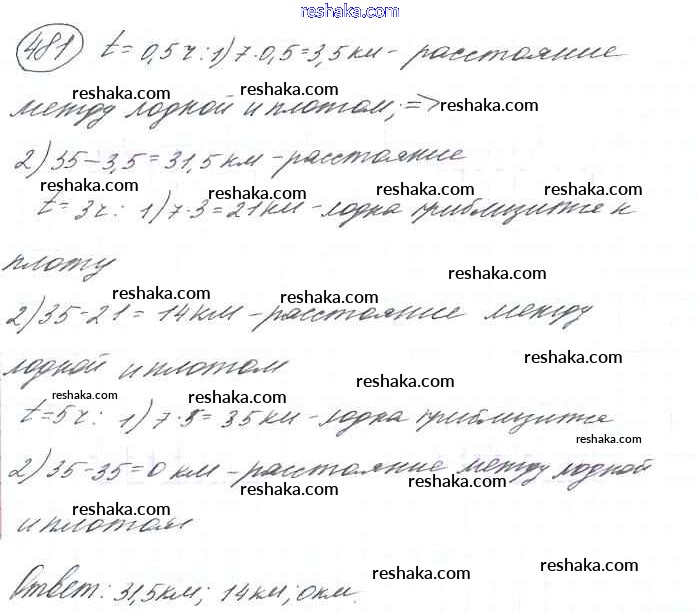 reshaka.com
481 t=0,5ч: 1) 7·0,5=3,5км - расстояние
reshaka.com reshaka.com reshaka.com
между лодкой и плотом; => reshaka.com
2) 35-3,5=31,5км - расстояние
reshaka.com reshaka.com reshaka.com reshaka.com
t=3ч: 1) 7·3=21км - лодка приблизится к
плоту
reshaka.com reshaka.com reshaka.com
2) 35-21=14км - расстояние между
лодкой и плотом
reshaka.com reshaka.com reshaka.com reshaka.com
t=5ч: 1) 7·5=35км - лодка приблизится
reshaka.com
2) 35-35=0км - расстояние между лодкой
reshaka.com reshaka.com reshaka.com
и плотом
reshaka.com reshaka.com reshaka.com
Ответ: 31,5км; 14км; 0км.